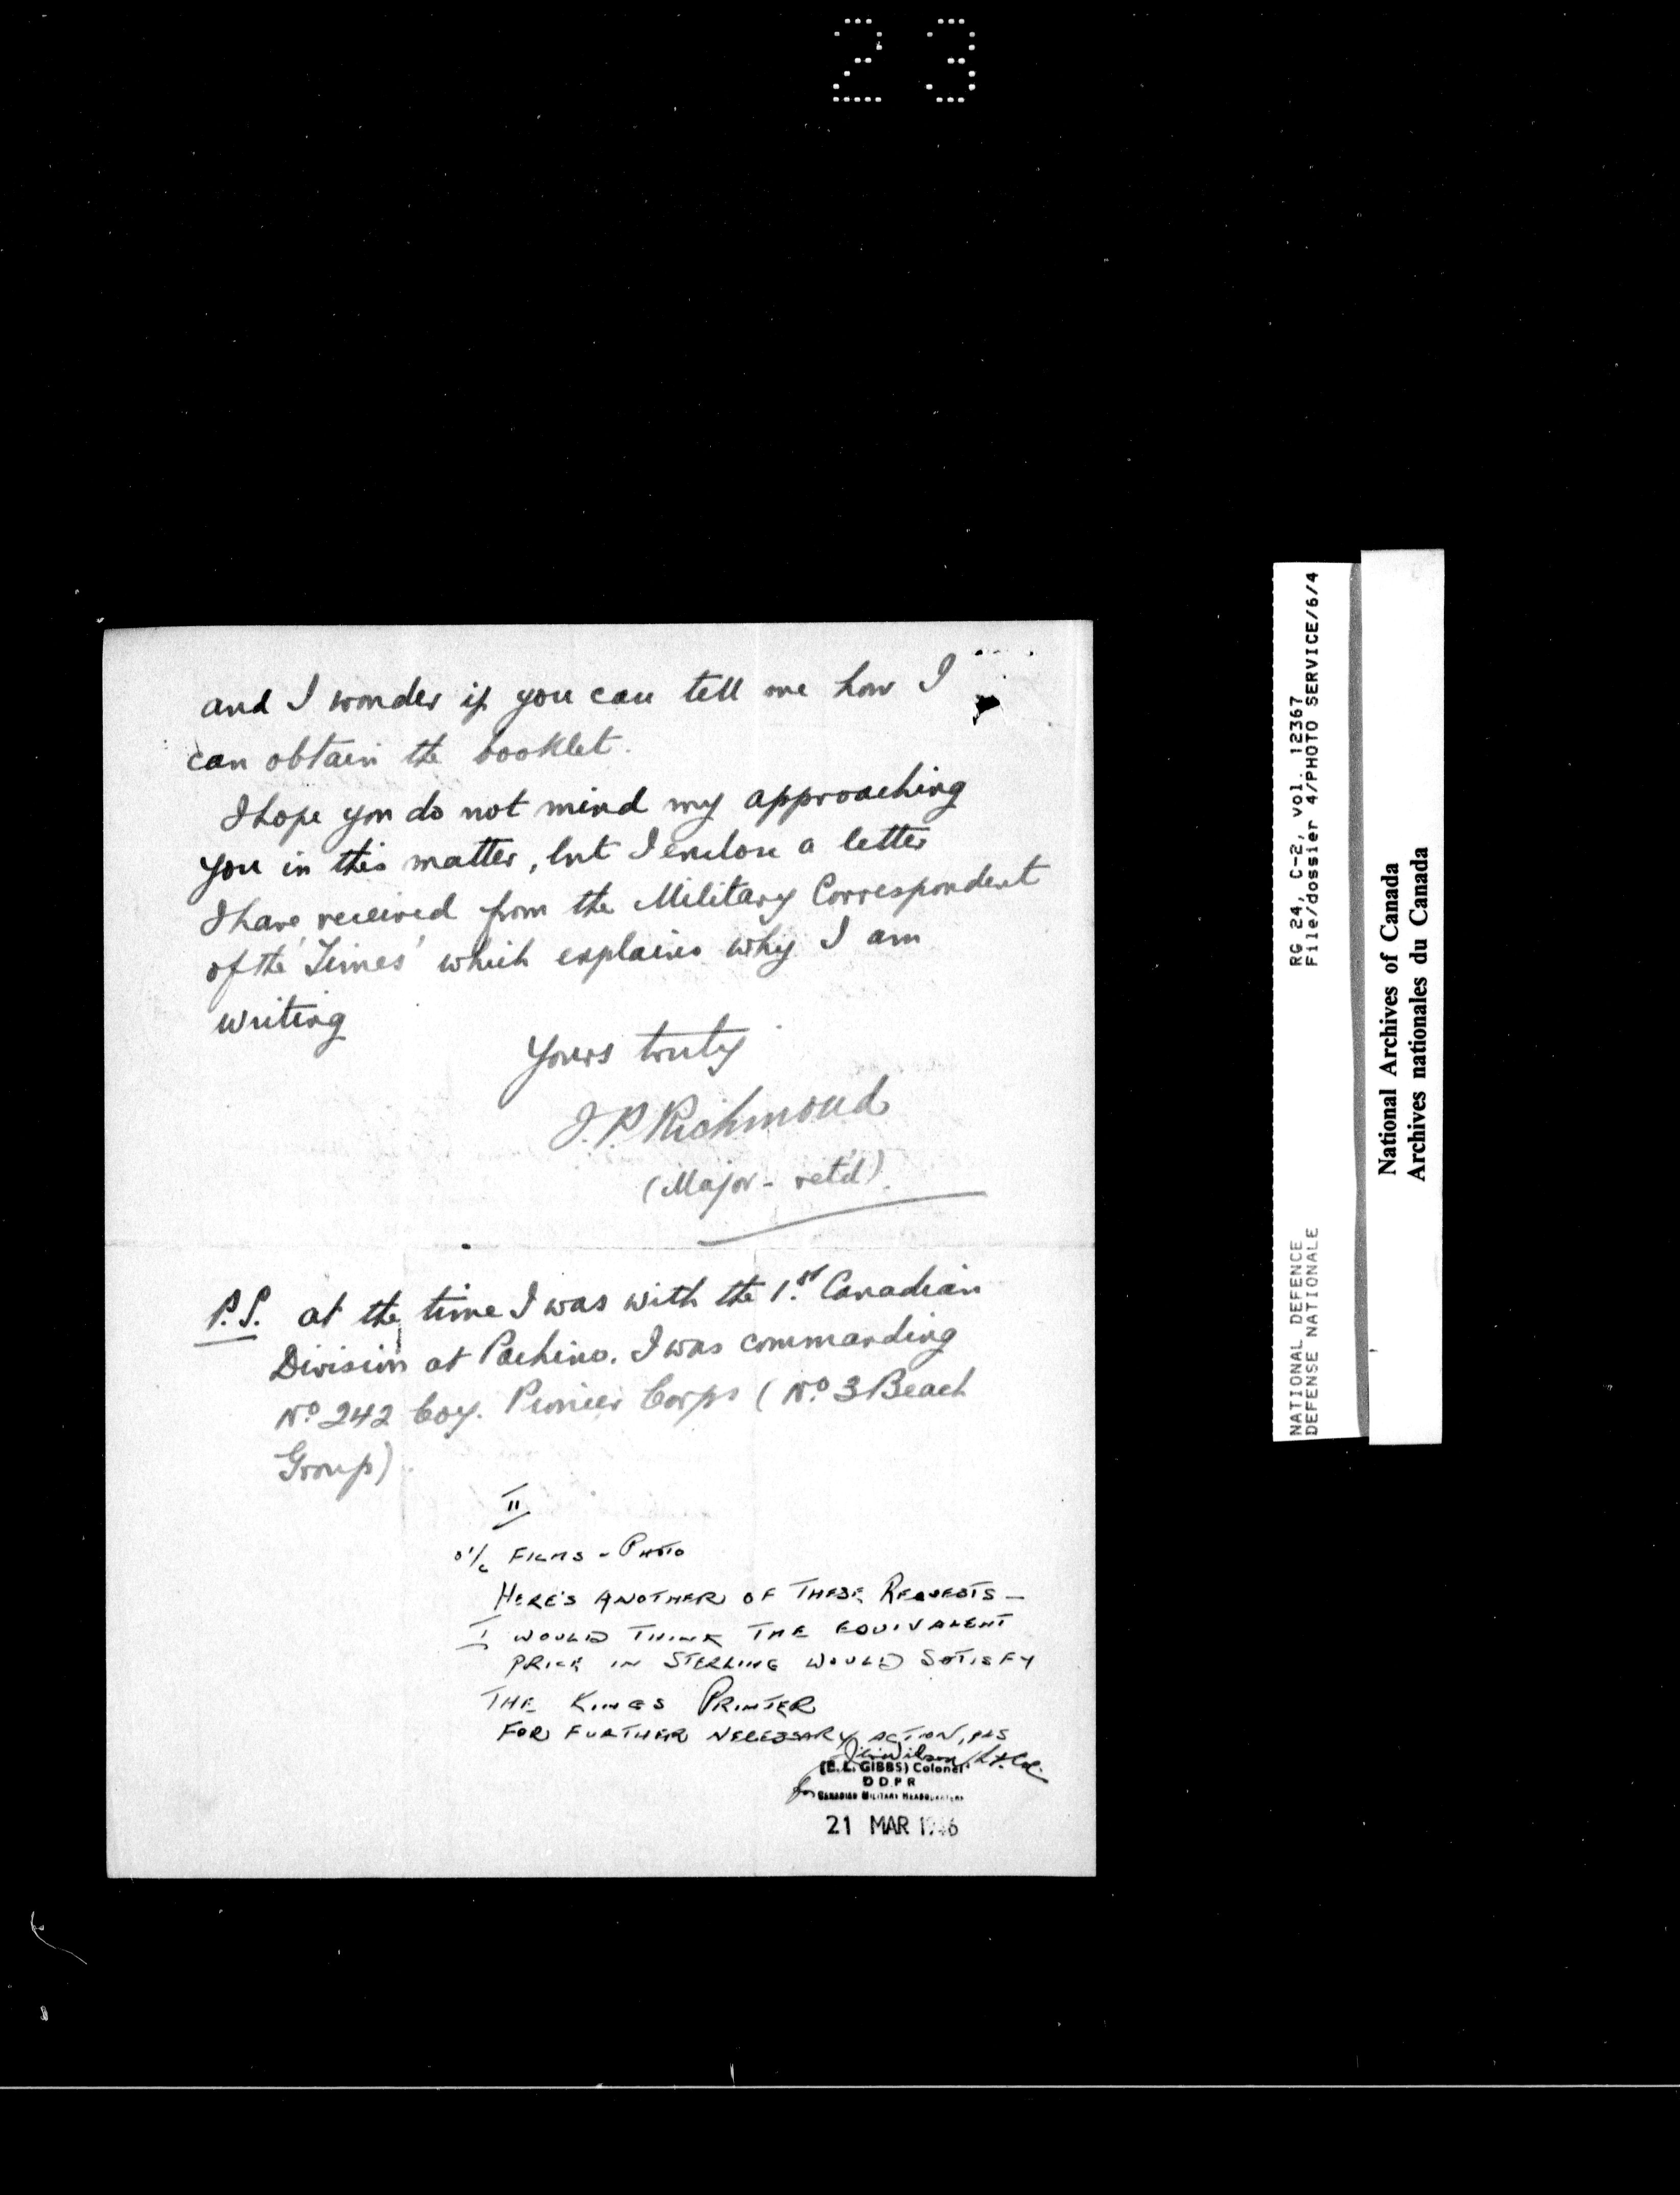 23
and I wonder if you can tell me how I
can obtain the booklet.
I hope you do not mind my approaching
you in this matter, but I enclose a letter
I have received from the Military Correspondent
of the 'Times' which explains why I am
writing
Yours truly
J.P. Richmond
(Major - ret'd).
P.S. at the time I was with the 1st Canadian
Division at Pachino. I was commanding
No 242 Coy. Pioneer Corps (No 3 Beach
Group).
II
O i/c FILMS - PHOTO
HERE'S ANOTHER OF THESE REQUESTS -
I WOULD THINK THE EQUIVALENT
PRICE IN STERLING WOULD SATISFY
THE KINGS PRINTER
FOR FURTHER NECESSARY ACTION, PLS
Wilson Lt. Col.
(E.L. GIBBS) Colonel
DDPR
for CANADIAN MILITARY HEADQUARTERS
21 MAR 1946
NATIONAL DEFENCE RG 24, C-2, vol. 12367
DEFENSE NATIONALE File/dossier 4/PHOTO SERVICE/6/4
National Archives of Canada
Archives nationales du Canada